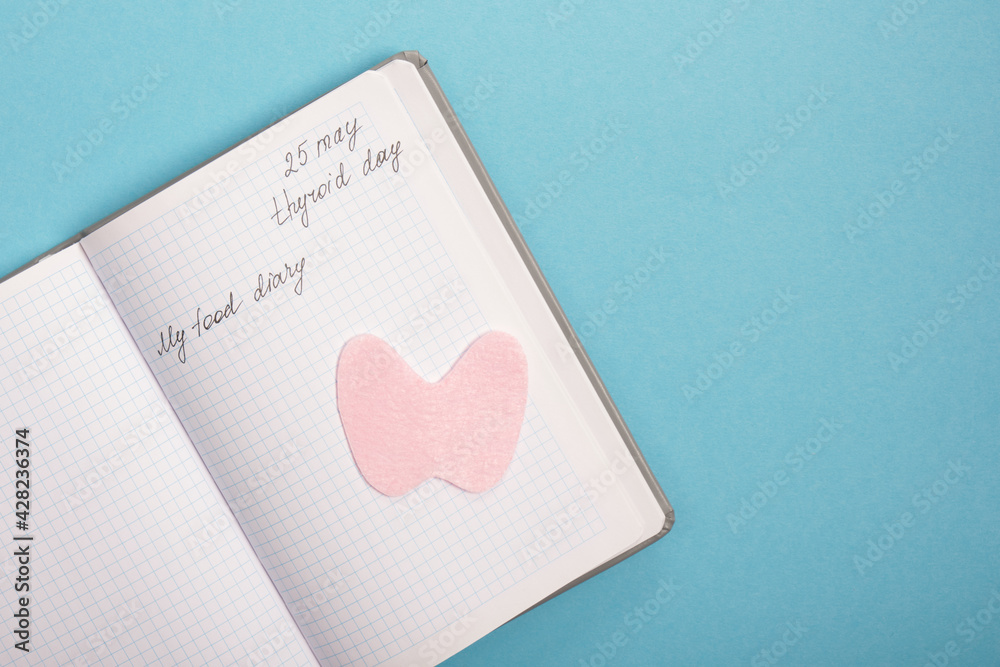 25 may
thyroid day
My food diary
Adobe Stock | #428236374